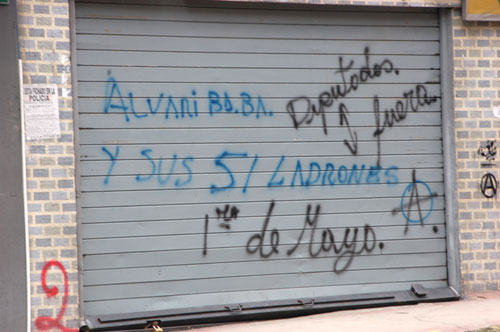 ALVARI BA.BA.
Diputados.
fuera.
Y SUS 51 LADRONES
A
1ra de Mayo.
POLICIA
2
A